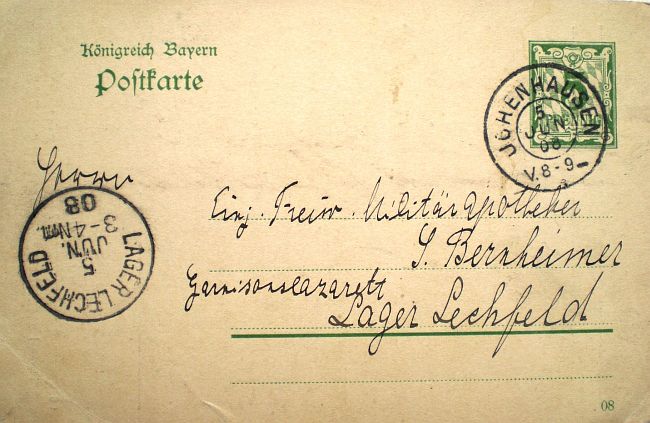 Königreich Bayern
Postkarte
JCHENHAUSEN
5
JUN
08
V.8-9
Herrn
Einj. Freiw. Militärapotheker
S. Bernheimer
Garnisonslazarett
Lager Lechfeld
LAGER LECHFELD
5
JUN.
3-4 Nm.
08
. 08